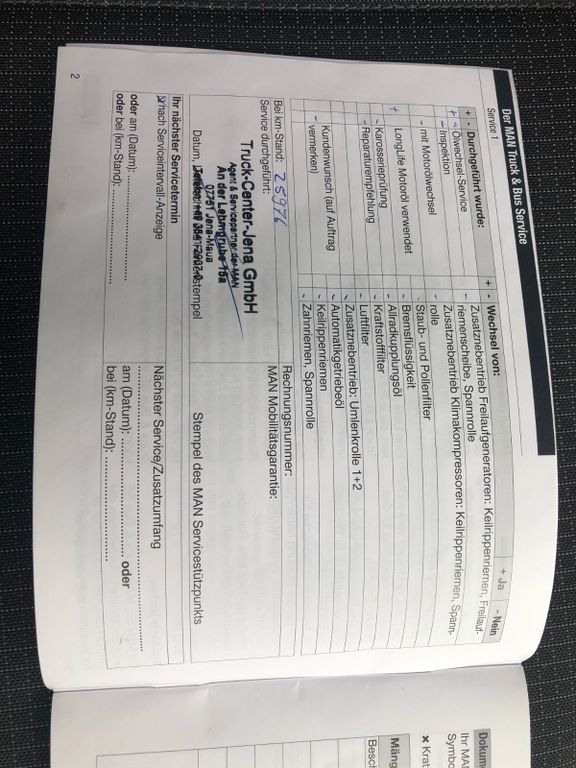 Der MAN Truck & Bus Service
Service 1
+ Ja - Nein
+ - Durchgeführt wurde:
+ - Ölwechsel-Service
- Inspektion
- mit Motorölwechsel
+ LongLife Motoröl verwendet
- Karosserieprüfung
- Reparaturempfehlung
Kundenwunsch (auf Auftrag
- vermerken)
+ - Wechsel von:
Zusatznebentrieb Freilaufgeneratoren: Keilrippenriemen, Freilauf-
- riemenscheibe, Spannrolle
Zusatznebentrieb Klimakompressoren: Keilrippenriemen, Spann-
- rolle
- Staub- und Pollenfilter
- Bremsflüssigkeit
- Allradkupplungsöl
- Kraftstofffilter
- Luftfilter
- Zusatznebentrieb: Umlenkrolle 1+2
- Automatikgetriebeöl
- Keilrippenriemen
- Zahnriemen, Spannrolle
Bei km-Stand: 25976
Service durchgeführt:
Truck-Center-Jena GmbH
Agent & Servicepartner der MAN
An der Lehmgrube 15a
07751 Jena-Maua
Datum,
Rechnungsnummer:
MAN Mobilitätsgarantie:
Stempel des MAN Servicestützpunkts
Ihr nächster Servicetermin
x nach Serviceintervall-Anzeige
oder am (Datum): ..................................
oder bei (km-Stand): ..................................
Nächster Service/Zusatzumfang
..................................
am (Datum): .................................. oder
bei (km-Stand): ..................................
2
Mäng
Besc
Ihr MA
Symbo